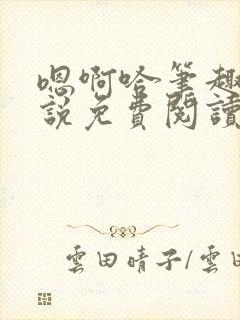 嗯啊哈筆趣
說免費閱讀
雲田晴子/雲田